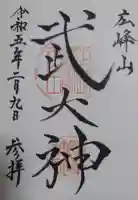 広峰山
武大神
令和五年二月九日
参拝